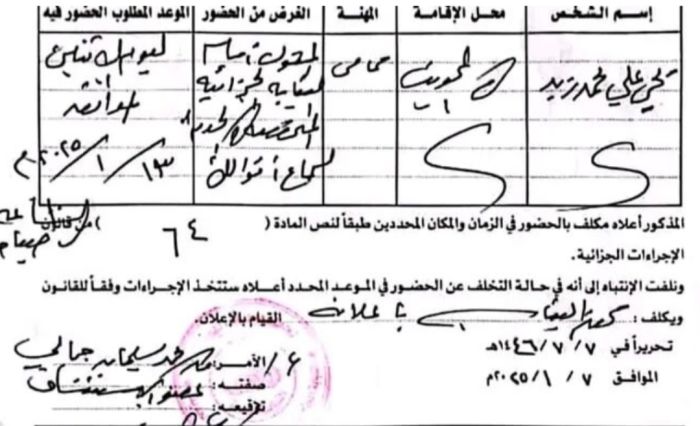 إسم الشخص محل الإقامة المهنة الغرض من الحضور الموعد المطلوب الحضور فيه
علي محمد زيد المحويت محامي المثول أمام النيابة الجزائية المتخصصة لسماع أقوالك ليوم الاثنين الموافق ١٣/١/٢٠٢٥م
المذكور أعلاه مكلف بالحضور في الزمان والمكان المحددين طبقاً لنص المادة ( ٦٤ ) من قانون
الإجراءات الجزائية.
ونلفت الإنتباه إلى أنه في حالة التخلف عن الحضور في الموعد المحدد أعلاه ستتخذ الإجراءات وفقاً للقانون
ويكلف : بإعلانه القيام بالإعلان.
تحريراً في ٧/٧/١٤٤٦هـ
الموافق ٧/١/٢٠٢٥م
الآمر: محمد سليمان جمالي
صفته: عضو الاستئناف
توقيعه: